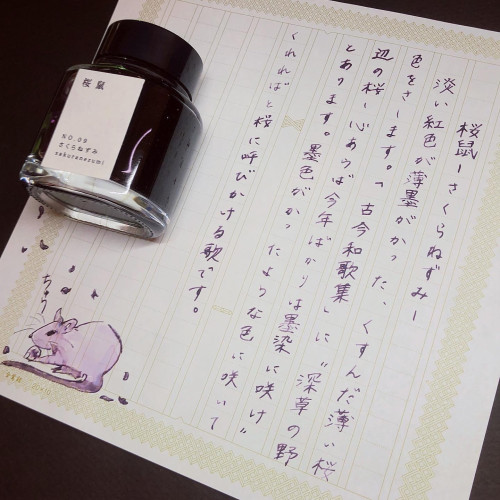 桜鼠ーさくらねずみー
淡い紅色が薄墨がかった、くすんだ薄い桜
色をさします。『古今和歌集』に“深草の野
辺の桜し心あらば今年ばかりは墨染に咲け”
とあります。墨色がかったような色に咲いて
くれればと桜に呼びかける歌です。
桜鼠
NO.09
さくらねずみ
sakuranezumi
ちゅう